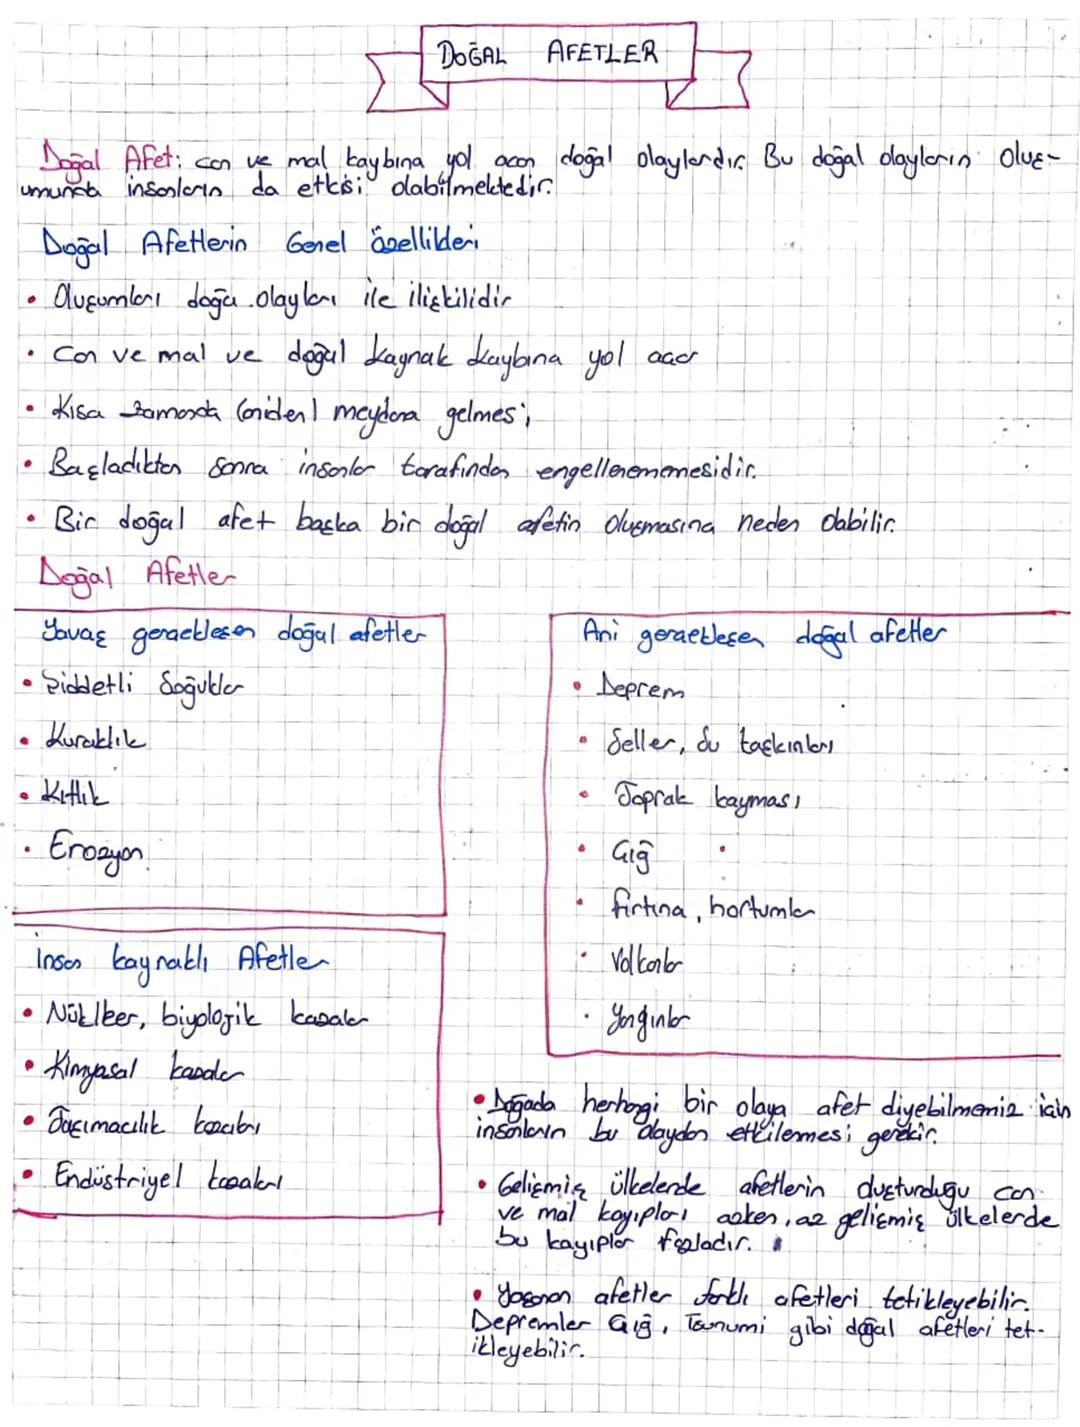 DOĞAL AFETLER
Doğal Afet: can ve mal kaybına yol acan doğal olaylardır. Bu doğal olayların oluş-
umunda insanların da etkisi olabilmektedir.
Doğal Afetlerin Genel özellikleri
• Oluşumları doğa olayları ile ilişkilidir
• Can ve mal ve doğal kaynak kaybına yol acar
• Kısa zamanda (aniden) meydana gelmesi
• Başladıktan sonra insanlar tarafından engellenememesidir.
• Bir doğal afet başka bir doğal afetin oluşmasına neden olabilir.
Doğal Afetler
Yavaş gerçekleşen doğal afetler
• Şiddetli Soğuklar
• Kuraklık
• Kıtlık
• Erozyon
İnsan kaynaklı Afetler
• Nükleer, biyolojik kazalar
• Kimyasal kazalar
• Taşımacılık kazaları
• Endüstriyel kazaları
Ani gerçekleşen doğal afetler
• Deprem
• Seller, Su taşkınları
• Toprak kayması
• Çığ
• fırtına, hortumlar
• Volkanlar
• Yangınlar
• Doğada herhangi bir olaya afet diyebilmemiz için
insanların bu olaydan etkilenmesi gerekir.
• Gelişmiş ülkelerde afetlerin duşturduğu can
ve mal kayıpları azken, az gelişmiş ülkelerde
bu kayıplar fazladır.
• Yaşanan afetler farklı afetleri tetikleyebilir.
Depremler Çığ, Tsunumi gibi doğal afetleri tet-
ikleyebilir.